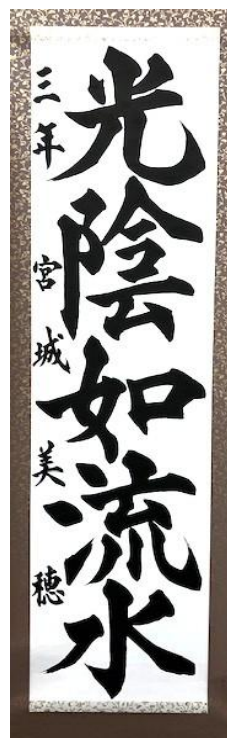 光陰如流水
三年 宮城美穂